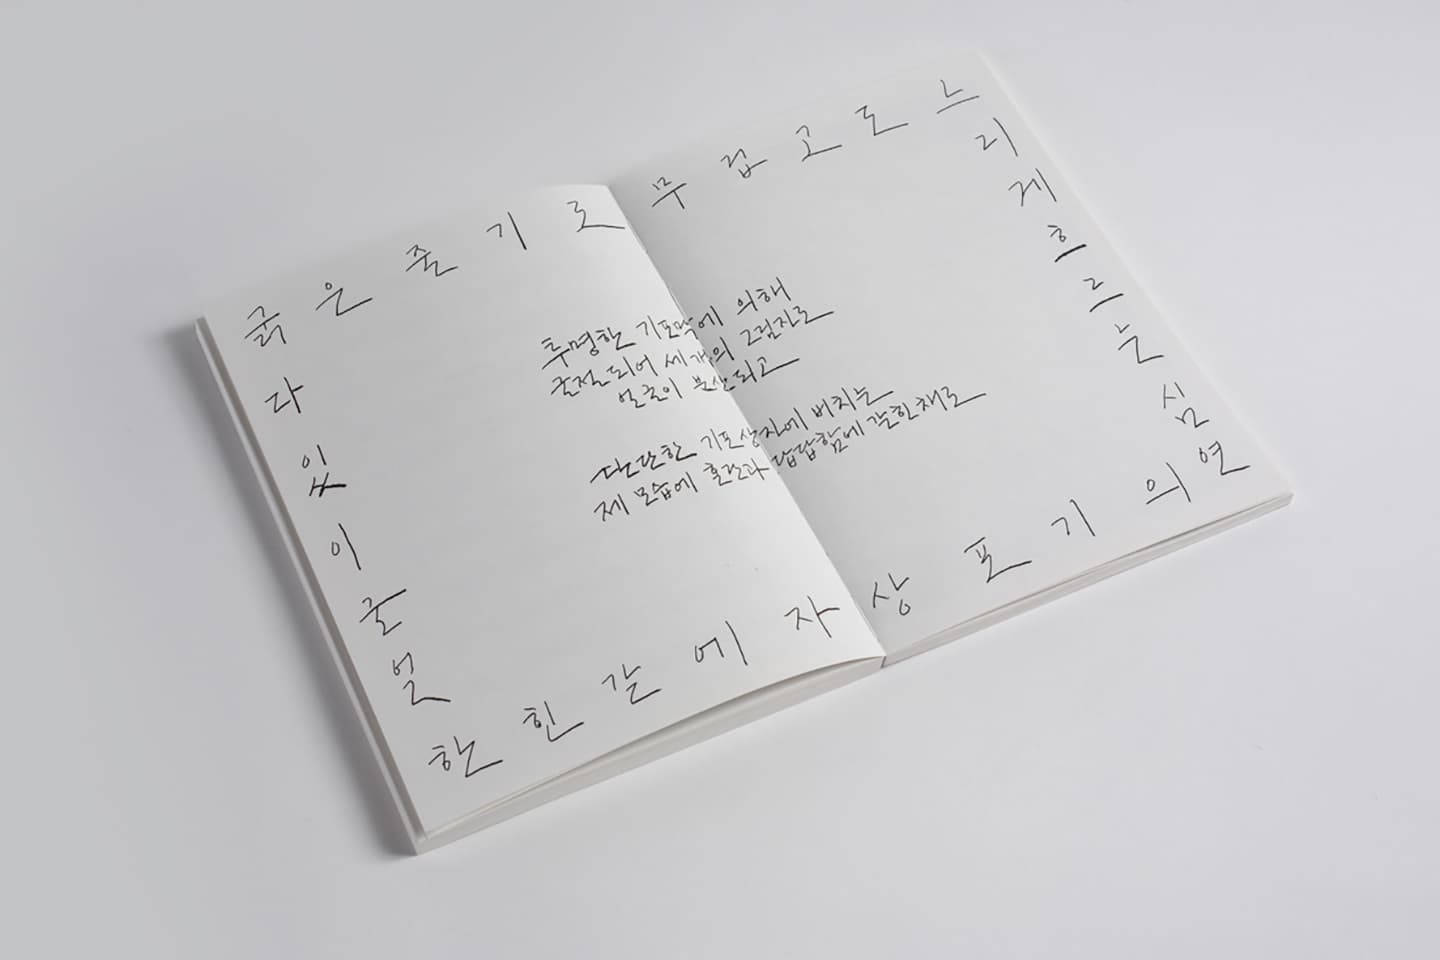 굵은줄기로무겁고도느
리게흐르는심연
의기포상자에갇힌한
얼굴이있다
투명한 기포막에 의해
굴절되어 세개의 그림자로
얼굴이 분산되고
단단한 기포상자에 비치는
제 모습에 혼란과 답답함에 갇힌채로